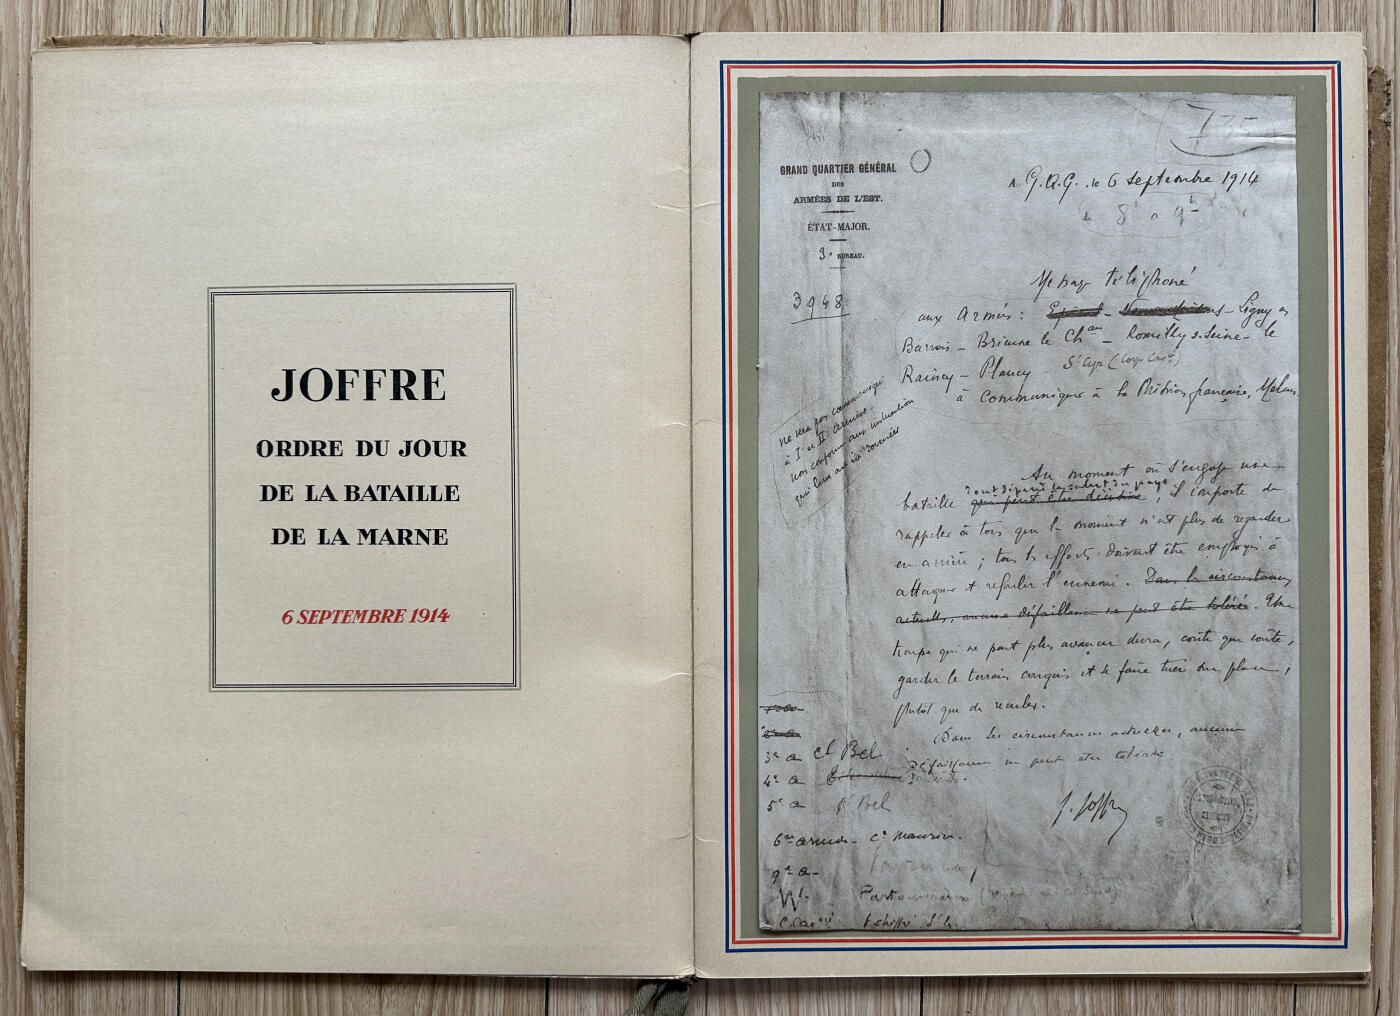 JOFFRE
ORDRE DU JOUR
DE LA BATAILLE
DE LA MARNE
6 SEPTEMBRE 1914
735
GRAND QUARTIER GÉNÉRAL
DES
ARMÉES DE L'EST.
ÉTAT-MAJOR.
3e BUREAU.
A G.Q.G., le 6 Septembre 1914
8h à 9h
3948
Message téléphoné
aux Armées : Epinal - - Ligny en
Barrois - Brienne le Chau - Romilly s. Seine - le
Raincy - Plancy - St Cyr (Corps Cavie)
à communiquer à la Mission française, Melun
ne sera pas communiqué
à I et II armées
non conforme aux instructions
qui leur ont été données
Au moment où s'engage une
dont dépend le salut du pays
bataille qui peut être décisive, il importe de
rappeler à tous que le moment n'est plus de regarder
en arrière ; tous les efforts doivent être employés à
attaquer et refouler l'ennemi. Dans les circonstances
actuelles, aucune défaillance ne peut être tolérée. Une
troupe qui ne peut plus avancer devra, coûte que coûte,
garder le terrain conquis et se faire tuer sur place,
plutôt que de reculer.
Dans les circonstances actuelles, aucune
défaillance ne peut être tolérée.
3e a cl Bel
4e a
5e a Bel
J. Joffre
6me armée - Ct Maurin.
9e a -